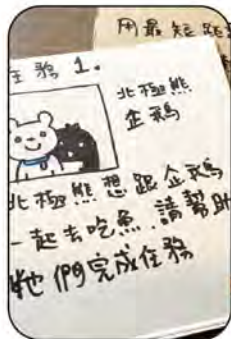 用最短距
任務 1.
北極熊
企鵝
北極熊想跟企鵝
一起去吃魚,請幫助
她們完成任務